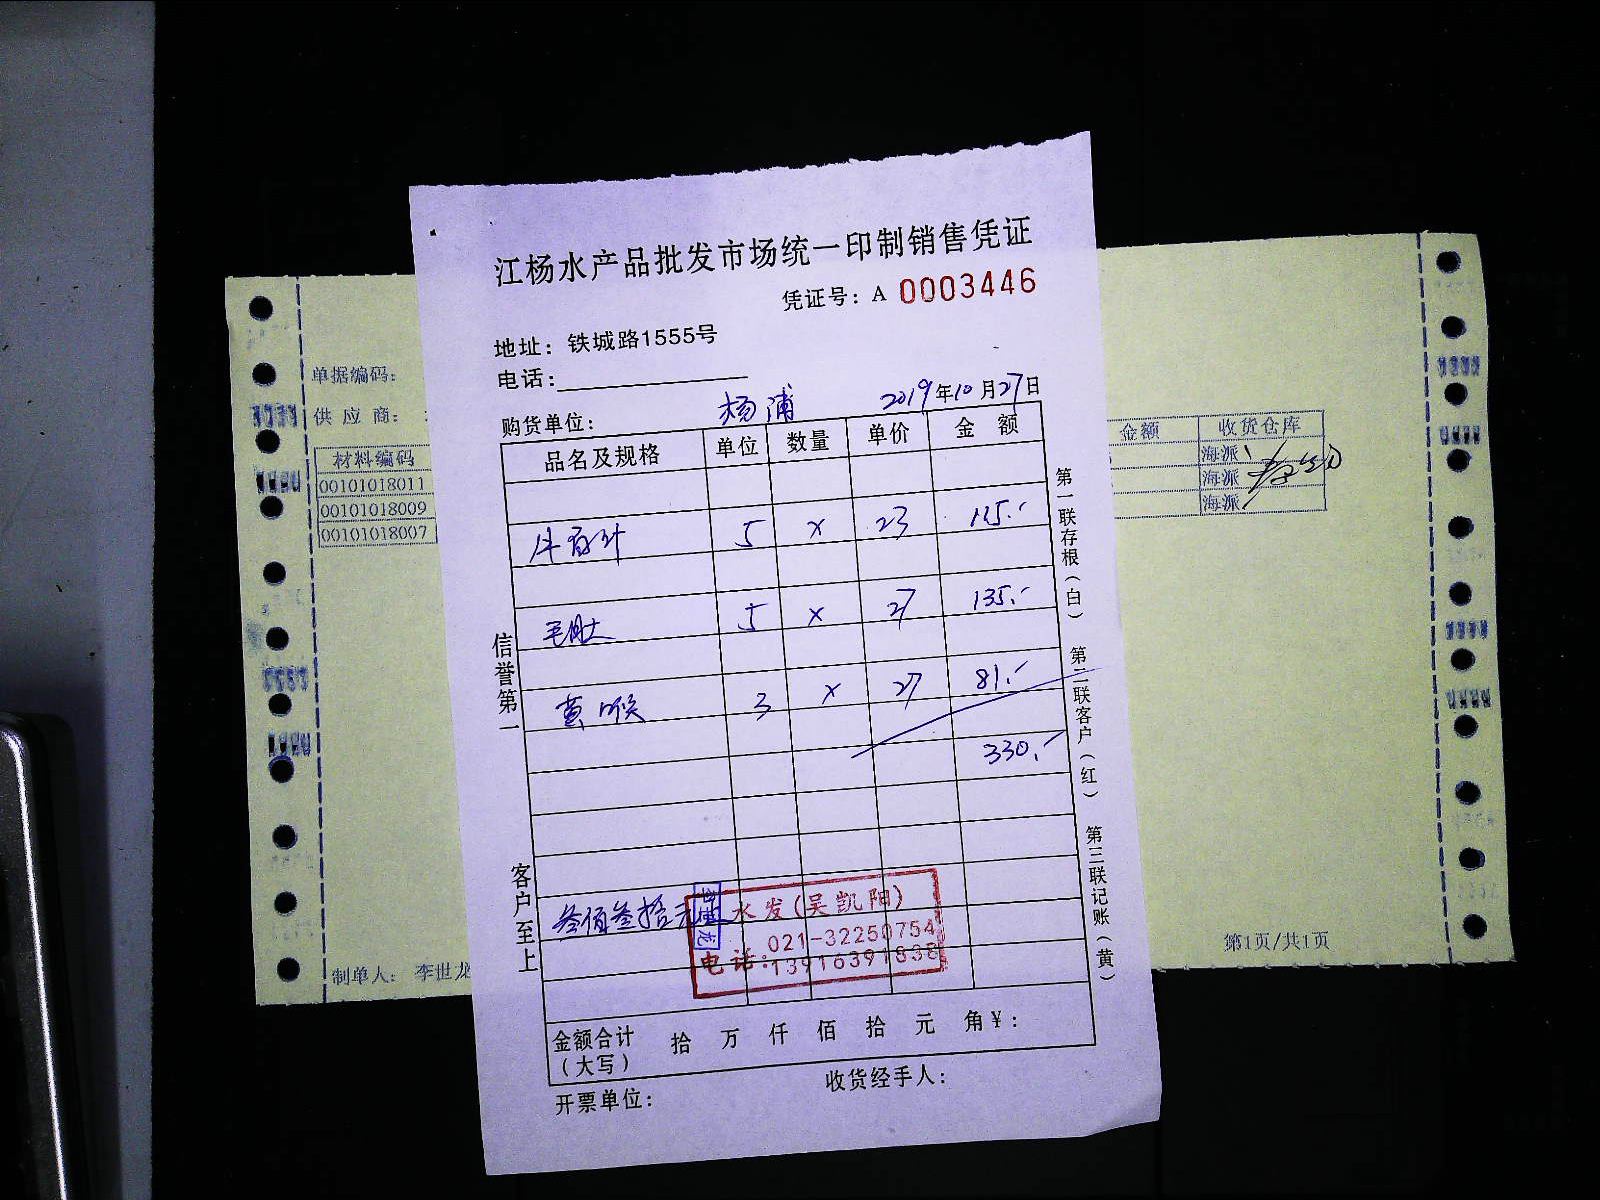 江杨水产品批发市场统一印制销售凭证
凭证号：A 0003446
地址：铁城路1555号
电话：
购货单位： 杨浦 2019年10月27日
品名及规格 单位 数量 单价 金额
牛百叶 5 × 23 115.-
毛肚 5 × 27 135.-
黄喉 3 × 27 81.-
330.-
叁佰叁拾元
水发(吴凯阳)
021-32250754
电话:13916391838
金额合计（大写） 拾 万 仟 佰 拾 元 角 ¥：
开票单位： 收货经手人：
信誉第一 客户至上
第一联存根（白） 第二联客户（红） 第三联记账（黄）
单据编码：
供应商：
材料编码 金额 收货仓库
00101018011 海派
00101018009 海派
00101018007 海派
制单人： 李世龙 第1页/共1页